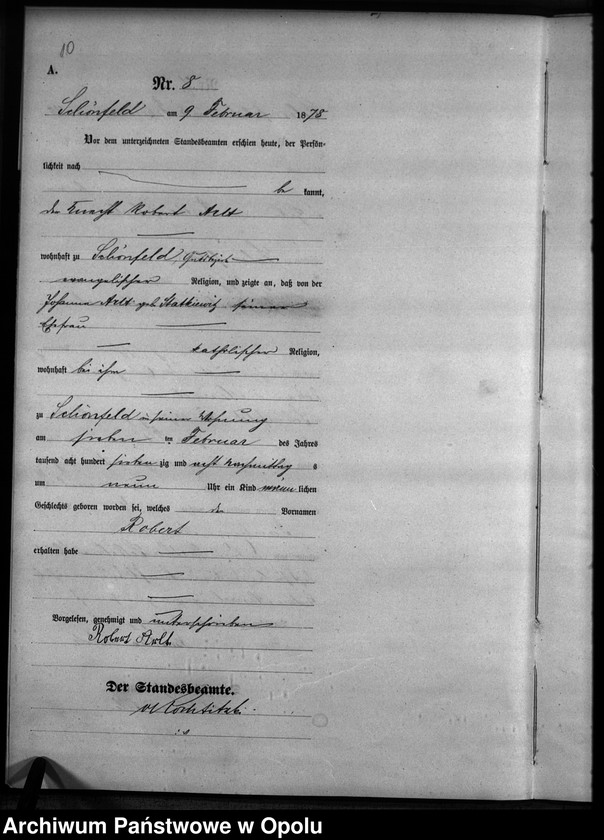 10
A.
Nr. 8
Schönfeld am 9 Februar 1878
Vor dem unterzeichneten Standesbeamten erschien heute, der Persön-
lichkeit nach
be kannt,
der Knecht Robert Arlt
wohnhaft zu Schönfeld, Gutsbezirk
evangelischer Religion, und zeigte an, daß von der
Johanna Arlt geb Statkiewitz seiner
Ehefrau
katholischer Religion,
wohnhaft bei ihm
zu Schönfeld in seiner Wohnung
am sieben ten Februar des Jahres
tausend acht hundert sieben zig und acht Nachmittag s
um neun Uhr ein Kind männ lichen
Geschlechts geboren worden sei, welches den Vornamen
Robert
erhalten habe
Vorgelesen, genehmigt und unterschrieben
Robert Arlt
Der Standesbeamte.
Archiwum Państwowe w Opolu